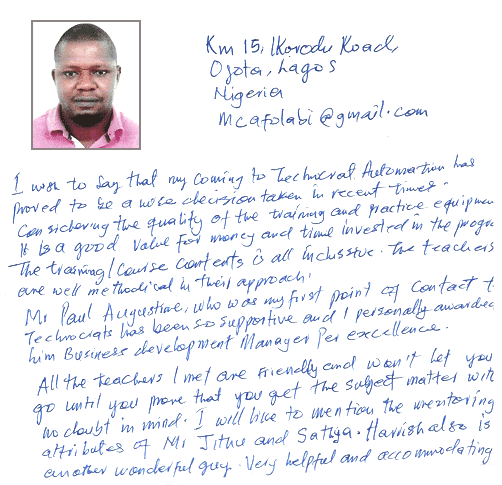 Km 15, Ikorodu Road,
Ojota, Lagos
Nigeria
mcafolabi@gmail.com
I wish to say that my coming to Technocrat Automation has
proved to be a wise decision taken in recent times.
Considering the quality of the training and practice equipmen
It is a good value for money and time invested in the progra
The training/course contents is all inclusive. The teachers
are well methodical in their approach.
Mr Paul Augustine, who was my first point of contact t
Technocrats has been so supportive and I personally awarded
him Business development Manager Per excellence.
All the teachers I met are friendly and won't let you
go until you prove that you get the subject matter with
no doubt in mind. I will like to mention the mentoring
attributes of Mr Jithu and Sathya. Harrish also is
another wonderful guy. Very helpful and accommodating